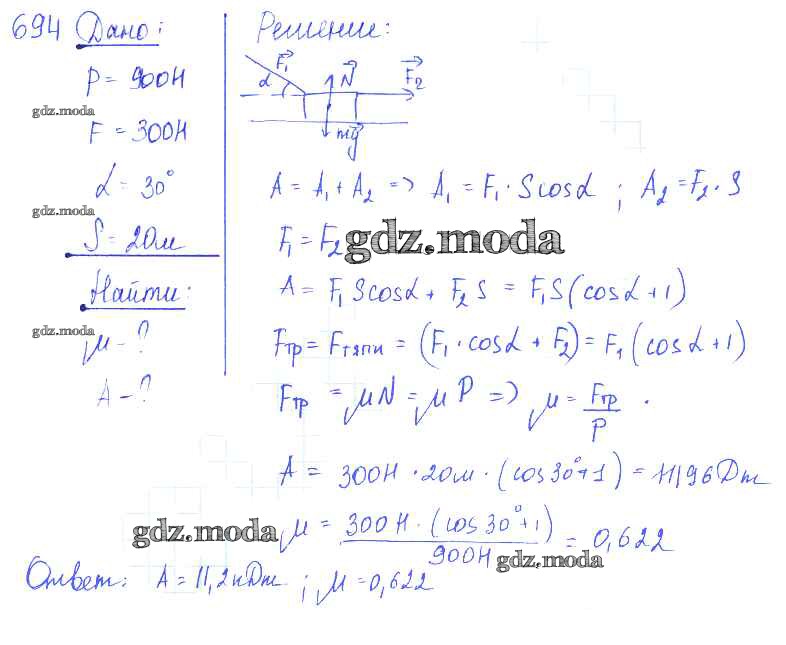 694 Дано:
P = 900Н
gdz.moda
F = 300Н
α = 30°
gdz.moda
S = 20м
Найти:
gdz.moda
μ - ?
A - ?
Решение:
F₁ α N F₂
mg
A = A₁ + A₂ => A₁ = F₁ · S cosα ; A₂ = F₂ · S
F₁ = F₂
gdz.moda
A = F₁ S cosα + F₂ S = F₁ S (cosα + 1)
Fтр = Fтяги = (F₁ · cosα + F₂) = F₁ (cosα + 1)
Fтр = μN = μP => μ = Fтр / P .
A = 300Н · 20м · (cos 30° + 1) = 11196 Дж
gdz.moda
μ = 300Н · (cos 30° + 1) / 900Н = 0,622
gdz.moda
Ответ: A = 11,2 кДж ; μ = 0,622